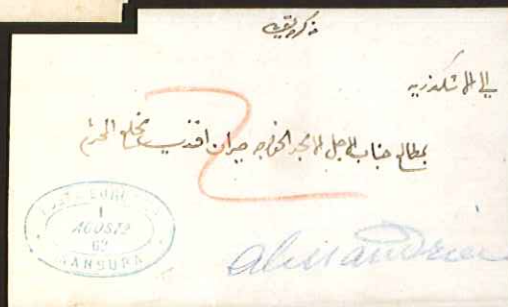 الى الاسكندريه
بمطالع جناب الاجل الامجد الخواجه جبران افندي المحترم
POSTA EUROPEA
1
AGOSTO
62
MANSURA
Alessandria